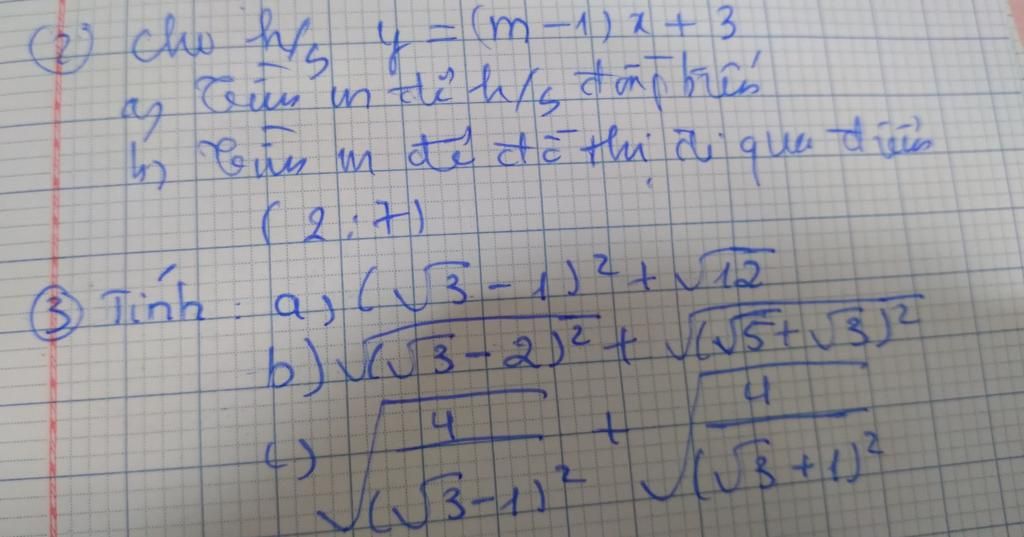 ② cho h/s y = (m - 1) x + 3
a) Tìm m để h/s đồng biến
b) Tìm m để đồ thị đi qua điểm
( 2 ; 7 )
③ Tính : a) (√3 - 1)² + √12
b) √(√3 - 2)² + √(√5 + √3)²
c) √(4/(√3 - 1)²) + √(4/(√3 + 1)²)